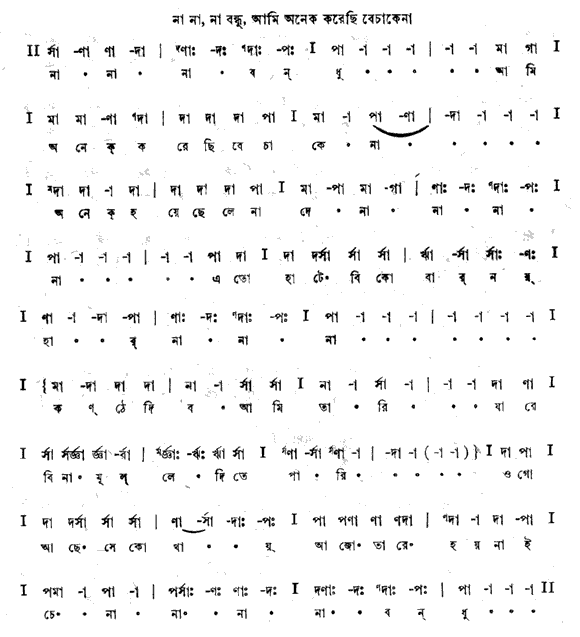 না না, না বন্ধু, আমি অনেক করেছি বেচাকেনা
II র্সা -ণা ণা -দা | ণাঃ -দঃ ণদাঃ -পঃ I পা -া -া -া | -া -া মা গা I
না • না • না • ব ন্ ধু • • • • • আ মি
I মা মা -ণা ণদা | দা দা দা পা I মা -া পা -ণা | -দা -া -া -া I
অ নে ক্ ক রে ছি বে চা কে • না • • • • •
I ণদা দা -া দা | দা দা দা পা I মা -পা মা -গা | ণাঃ -দঃ ণদাঃ -পঃ I
অ নে ক্ হ য়ে ছে লে না দে • না • না • না •
I পা -া -া -া | -া -া পা দা I দা দর্সা র্সা র্সা | র্ঋা -র্সা র্সাঃ -ণঃ I
না • • • • • এ তো হা টে• বি কো বা র্ ন য়্
I ণা -া -দা -পা | ণাঃ -দঃ ণদাঃ -পঃ I পা -া -া -া | -া -া -া -া I
হা • • র্ না • না • না • • • • • • •
I {মা -দা দা দা | না -া র্সা র্সা I না -া র্সা -া | -া -া দা ণা I
ক ণ্ ঠে দি ব • আ মি তা • রি • • • যা রে
I র্সা র্সর্জ্ঞা র্জ্ঞা -র্ঋা | র্জ্ঞাঃ -র্ঋঃ র্ঋা র্সা I ণা -র্সা ণা -া | -দা -া (-া -া)} I দা পা I
বি না• মূ ল্ লে • দি তে পা • রি • • • • • ও গো
I দা দর্সা র্সা র্সা | ণা -র্সা -দাঃ -পঃ I পা পণা ণা ণদা | ণদা -া দা -পা I
আ ছে• সে কো থা • • য়্ আ জো• তা রে• হ য় না ই
I পমা -া পা -া | পর্সাঃ -ণঃ ণাঃ -দঃ I দণাঃ -দঃ ণদাঃ -পঃ | পা -া -া -া II
চে• • না • না• • না • না• • ব ন্ ধু • • •